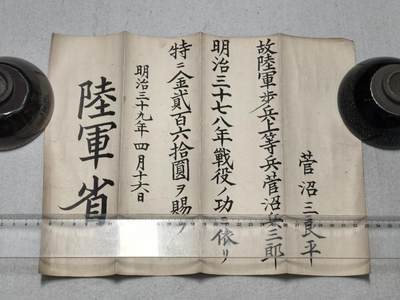 菅沼三良平
故陸軍歩兵上等兵菅沼兵三郎
明治三十七八年戦役ノ功ニ依リ
特ニ金貳百六拾圓ヲ賜フ
明治三十九年四月十六日
陸軍省